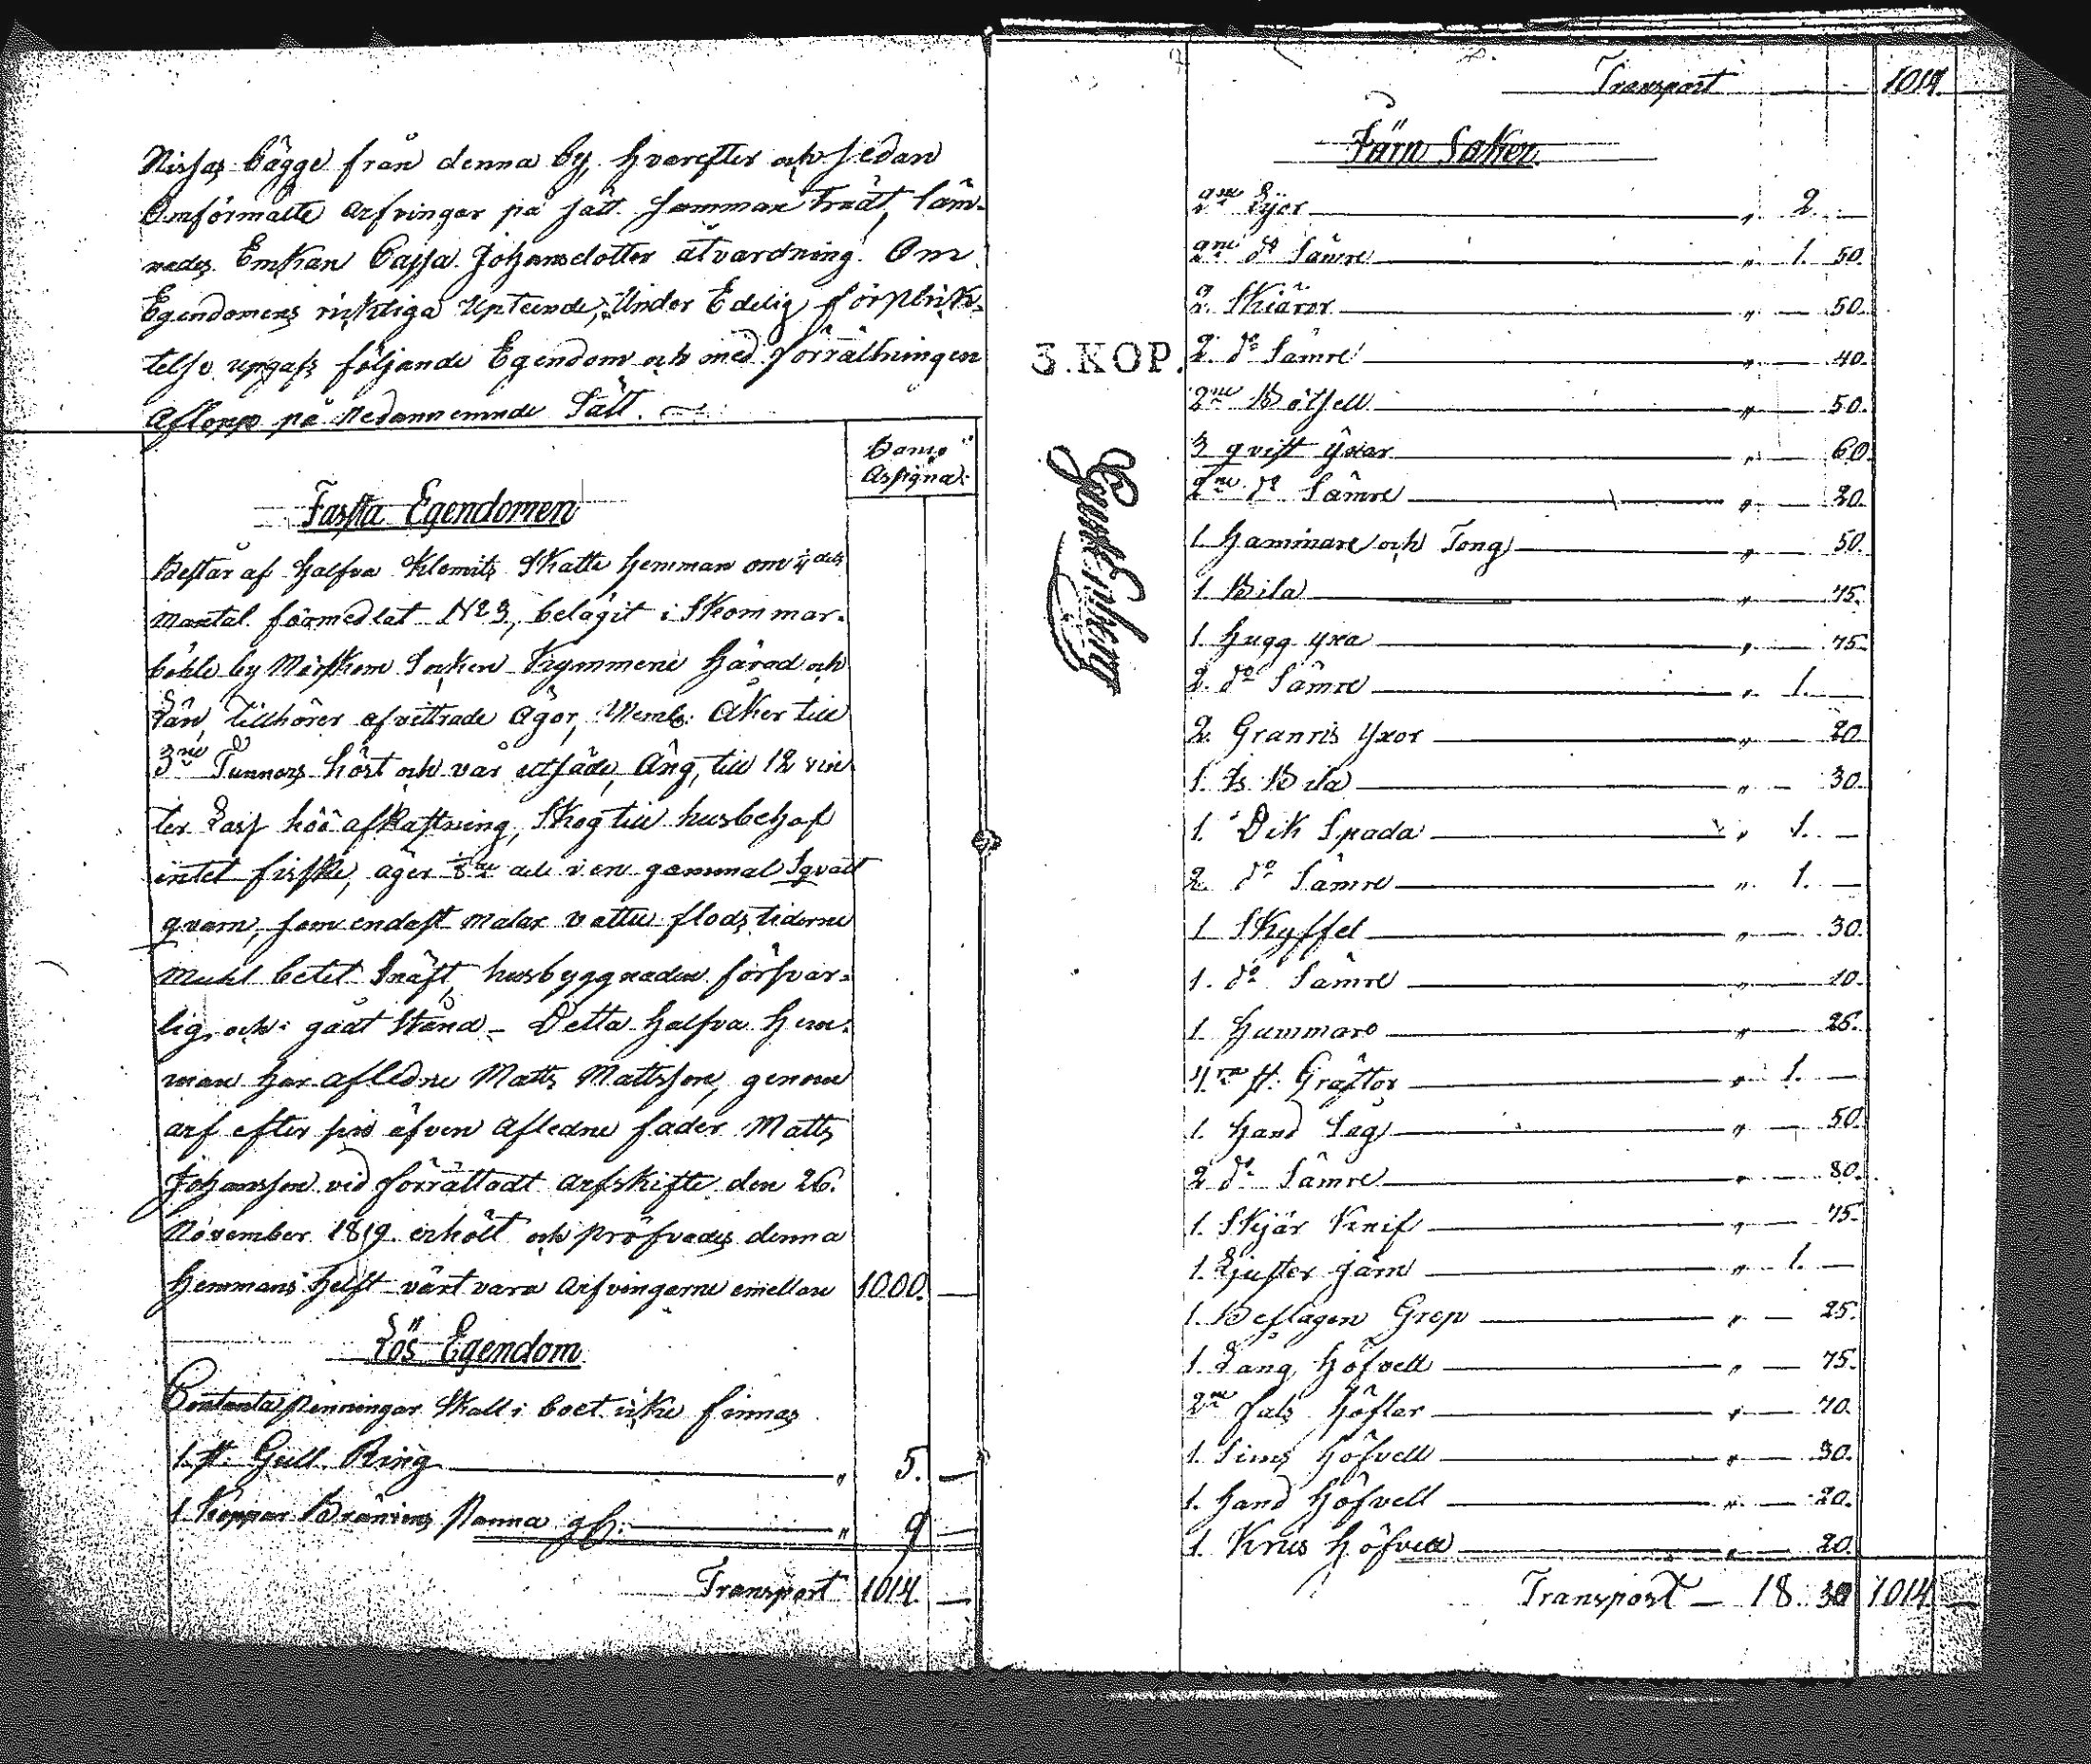 Nissas bägge från denna by, hvarefter och sedan
Omförmälte arfvingar på sätt samman trädt, läm-
nades Enkan Cajsa Johansdotter åtvardning. Om
Egendomens ricktiga Upteende, Under Edelig förplick-
telse upgafs följande Egendom och med förrättningen
aflopp på nedannemnde Sätt.
Banco
Assigna:
Fasta Egendomen
Består af halfva Klemits Skatte hemman om 1/4 dels
mantal förmedlat N:o 3, belägit i Skommar-
böhle by Mörskom Socken Kymmene härad och
Län, tillhörer afvittrade ägor, Neml: Åker till
3ne Tunnors höst och vår utsäde, Äng, till 12 vin
ter Lass höö afkastning, Skog till husbehof
intet fiske, äger 1/8 del i en gammal Sqvalt
qvarn, som endast malar vattu flods tiderne
Muhl betet knäft, husbyggnaden försvar-
lig, och i gådt Stånd - Detta halfva hem-
man har afledne Matts Mattsson, genom
arf efter sin äfven afledne fader Matts
Johansson vid förrättadt arfskifte den 26.
November 1819. erhållt och pröfvades denna
hemmans helft värt vara arfvingarne emellan 1000. —
Lös Egendom
Contanta penningar Skall i boet icke finnas
1. st. Gull Ring — " 5. —
1 Koppar Bränvins panna — " 9 —
Transport 1014. —
Transport — 1014. —
Järn Saker
2ne Lijer — " 2. —
2ne do Sämre — " 1. 50.
2. Skiäror — " — 50.
2. do Sämre — " — 40.
3.KOP.
2ne Bötsell — " — 50.
3 qvist yxar — " — 60.
2ne do Sämre — " — 20.
1. hammare och Tong — " — 50
1. Bila — " — 75.
1. hugg yxa — " — 75
2. do Sämre — " 1. —
2. Granris yxor — " — 20
1. Is Bila — " — 30.
1. Dik Spada — " 1. —
2 do Sämre — " 1. —
1 Skyffel — " — 30.
1. do Sämre — " — 10.
1. hammare — " — 25.
4ra st. Gräftor — " 1. —
1. hand Såg — " — 50.
2 do Sämre — " — 80.
1. Skjär Knif — " — 75.
1. Ljuster järn — " 1. —
1. Beslagen Grep — " — 25.
1. Lång höfvell — " — 75.
2ne fals höflar — " — 70.
1. Sims höfvell — " — 30.
1. hand höfvell — " — 20.
1. Krus höfvell — " — 20.
Transport — 18. 30 1014 —